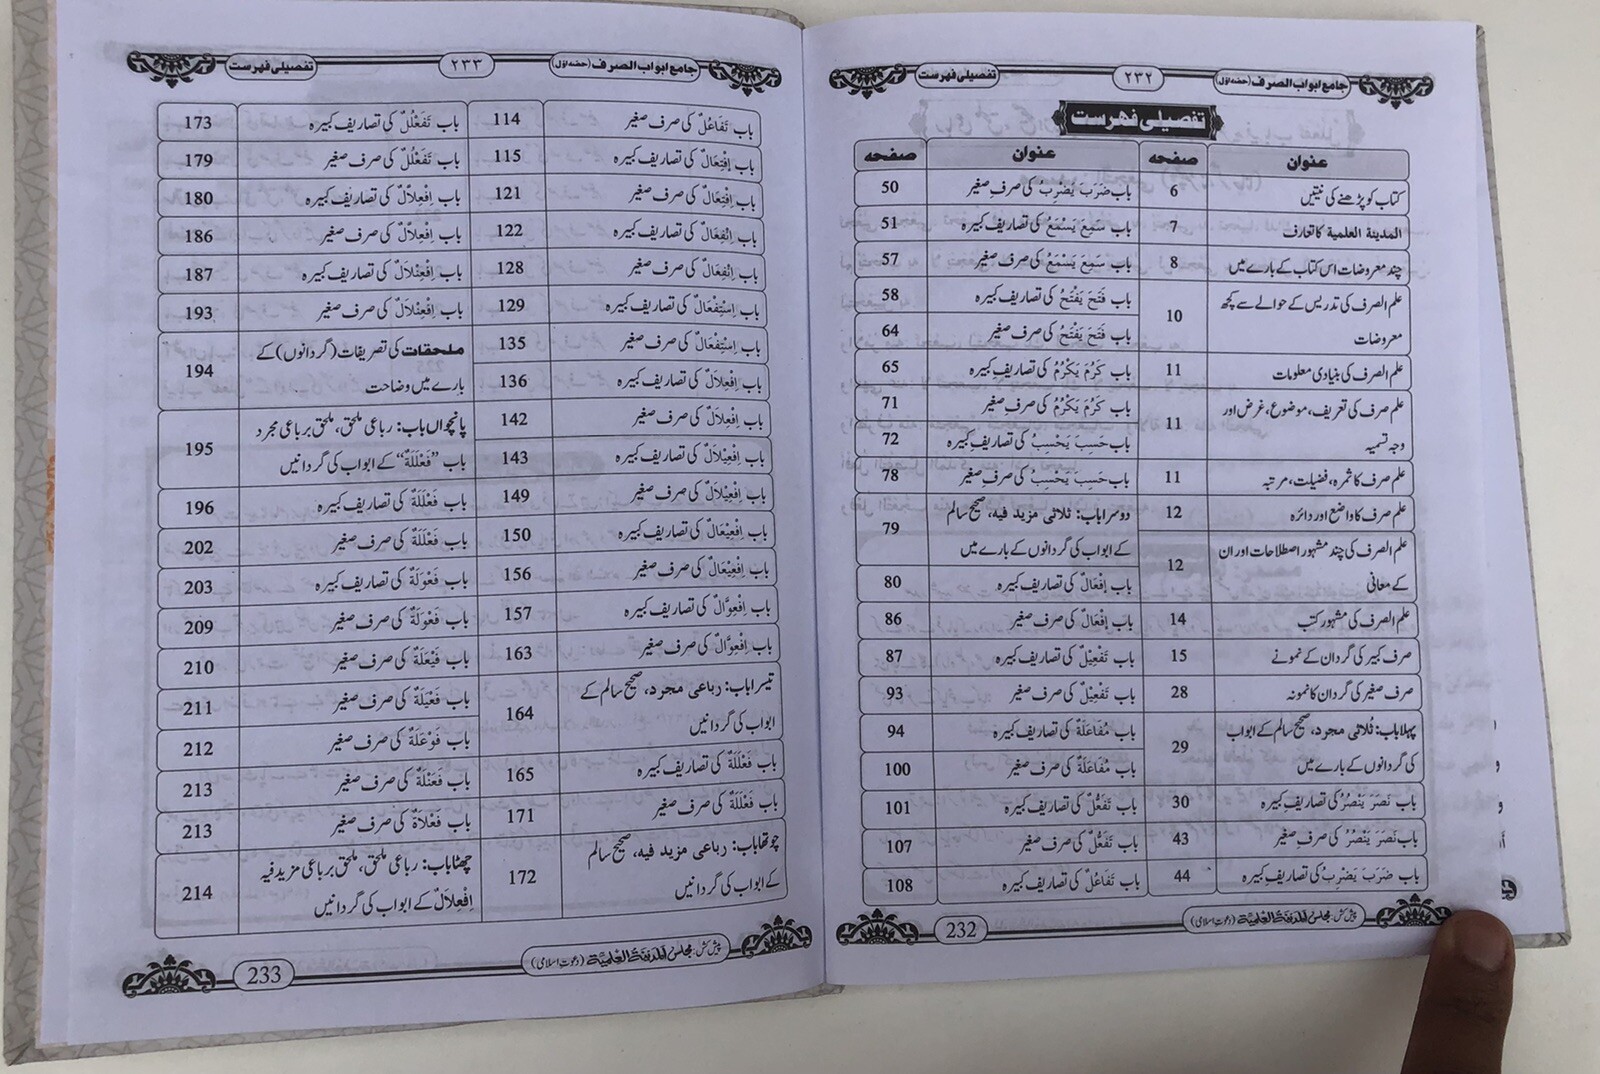 جامع ابواب الصرف (حصہ اوّل) ۲۳۲ تفصیلی فہرست
تفصیلی فہرست
عنوان صفحہ عنوان صفحہ
کتاب کو پڑھنے کی نیتیں 6
المدینۃ العلمیۃ کا تعارف 7
چند معروضات اس کتاب کے بارے میں 8
علم الصرف کی تدریس کے حوالے سے کچھ
معروضات 10
علم الصرف کی بنیادی معلومات 11
علم صرف کی تعریف، موضوع، غرض اور
وجہ تسمیہ 11
علم صرف کا ثمرہ، فضیلت، مرتبہ 11
علم صرف کا واضع اور دائرہ 12
علم الصرف کی چند مشہور اصطلاحات اور ان
کے معانی 12
علم الصرف کی مشہور کتب 14
صرف کبیر کی گردان کے نمونے 15
صرف صغیر کی گردان کا نمونہ 28
پہلا باب: ثلاثی مجرد، صحیح سالم کے ابواب
کی گردانوں کے بارے میں 29
باب نَصَرَ یَنْصُرُ کی تصاریف کبیرہ 30
باب نَصَرَ یَنْصُرُ کی صرف صغیر 43
باب ضَرَبَ یَضْرِبُ کی تصاریف کبیرہ 44
باب ضَرَبَ یَضْرِبُ کی صرف صغیر 50
باب سَمِعَ یَسْمَعُ کی تصاریف کبیرہ 51
باب سَمِعَ یَسْمَعُ کی صرف صغیر 57
باب فَتَحَ یَفْتَحُ کی تصاریف کبیرہ 58
باب فَتَحَ یَفْتَحُ کی صرف صغیر 64
باب کَرُمَ یَکْرُمُ کی تصاریف کبیرہ 65
باب کَرُمَ یَکْرُمُ کی صرف صغیر 71
باب حَسِبَ یَحْسِبُ کی تصاریف کبیرہ 72
باب حَسِبَ یَحْسِبُ کی صرف صغیر 78
دوسرا باب: ثلاثی مزید فیہ، صحیح سالم
کے ابواب کی گردانوں کے بارے میں 79
باب اِفْعَالٌ کی تصاریف کبیرہ 80
باب اِفْعَالٌ کی صرف صغیر 86
باب تَفْعِیْلٌ کی تصاریف کبیرہ 87
باب تَفْعِیْلٌ کی صرف صغیر 93
باب مُفَاعَلَۃٌ کی تصاریف کبیرہ 94
باب مُفَاعَلَۃٌ کی صرف صغیر 100
باب تَفَعُّلٌ کی تصاریف کبیرہ 101
باب تَفَعُّلٌ کی صرف صغیر 107
باب تَفَاعُلٌ کی تصاریف کبیرہ 108
پیش کش: مجلس المدینۃ العلمیۃ (دعوت اسلامی) 232
جامع ابواب الصرف (حصہ اوّل) ۲۳۳ تفصیلی فہرست
باب تَفَاعُلٌ کی صرف صغیر 114
باب اِفْتِعَالٌ کی تصاریف کبیرہ 115
باب اِفْتِعَالٌ کی صرف صغیر 121
باب اِنْفِعَالٌ کی تصاریف کبیرہ 122
باب اِنْفِعَالٌ کی صرف صغیر 128
باب اِسْتِفْعَالٌ کی تصاریف کبیرہ 129
باب اِسْتِفْعَالٌ کی صرف صغیر 135
باب اِفْعِلَالٌ کی تصاریف کبیرہ 136
باب اِفْعِلَالٌ کی صرف صغیر 142
باب اِفْعِیْلَالٌ کی تصاریف کبیرہ 143
باب اِفْعِیْلَالٌ کی صرف صغیر 149
باب اِفْعِیْعَالٌ کی تصاریف کبیرہ 150
باب اِفْعِیْعَالٌ کی صرف صغیر 156
باب اِفْعِوَّالٌ کی تصاریف کبیرہ 157
باب اِفْعِوَّالٌ کی صرف صغیر 163
تیسرا باب: رباعی مجرد، صحیح سالم کے
ابواب کی گردانیں 164
باب فَعْلَلَۃٌ کی تصاریف کبیرہ 165
باب فَعْلَلَۃٌ کی صرف صغیر 171
چوتھا باب: رباعی مزید فیہ، صحیح سالم
کے ابواب کی گردانیں 172
باب تَفَعْلُلٌ کی تصاریف کبیرہ 173
باب تَفَعْلُلٌ کی صرف صغیر 179
باب اِفْعِلَّالٌ کی تصاریف کبیرہ 180
باب اِفْعِلَّالٌ کی صرف صغیر 186
باب اِفْعِنْلَالٌ کی تصاریف کبیرہ 187
باب اِفْعِنْلَالٌ کی صرف صغیر 193
ملحقات کی تصریفات (گردانوں) کے
بارے میں وضاحت 194
پانچواں باب: رباعی ملحق، ملحق برباعی مجرد
باب ”فَعْلَلَۃٌ“ کے ابواب کی گردانیں 195
باب فَعْلَلَۃٌ کی تصاریف کبیرہ 196
باب فَعْلَلَۃٌ کی صرف صغیر 202
باب فَعْوَلَۃٌ کی تصاریف کبیرہ 203
باب فَعْوَلَۃٌ کی صرف صغیر 209
باب فَیْعَلَۃٌ کی صرف صغیر 210
باب فَعْیَلَۃٌ کی صرف صغیر 211
باب فَوْعَلَۃٌ کی صرف صغیر 212
باب فَعْنَلَۃٌ کی صرف صغیر 213
باب فَعْلَاۃٌ کی صرف صغیر 213
چھٹا باب: رباعی ملحق، ملحق برباعی مزید فیہ
اِفْعِلَّالٌ کے ابواب کی گردانیں 214
پیش کش: مجلس المدینۃ العلمیۃ (دعوت اسلامی) 233